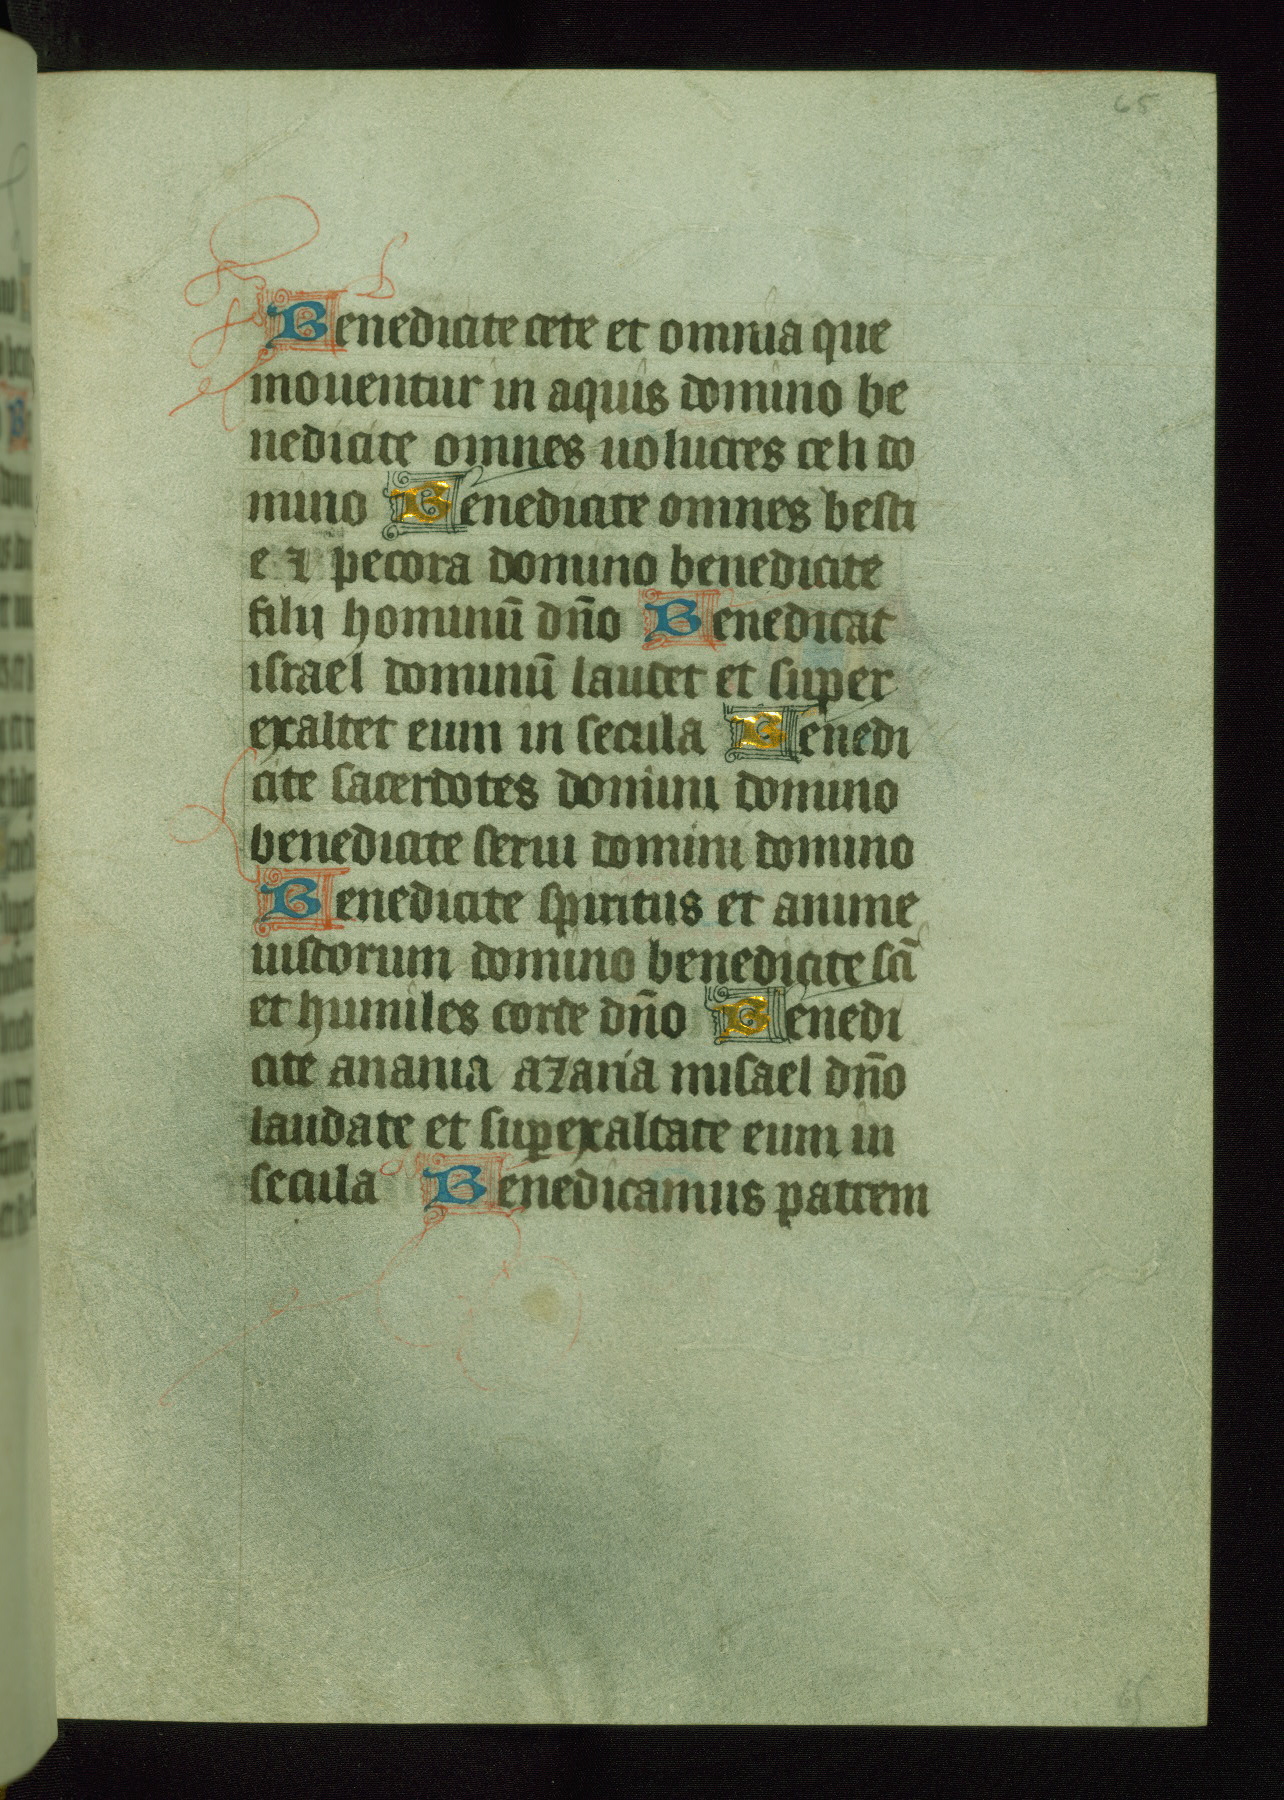 65
Benedicite cete et omnia que
mouentur in aquis domino be
nedicite omnes uolucres celi do
mino Benedicite omnes besti
e ⁊ pecora domino benedicite
filij hominū dño Benedicat
israel dominū laudet et super
exaltet eum in secula Benedi
cite sacerdotes domini domino
benedicite serui domini domino
Benedicite spiritus et anime
iustorum domino benedicite sc̄i
et humiles corde dño Benedi
cite anania azaria misael dño
laudate et suꝑexaltate eum in
secula Benedicamus patrem
65